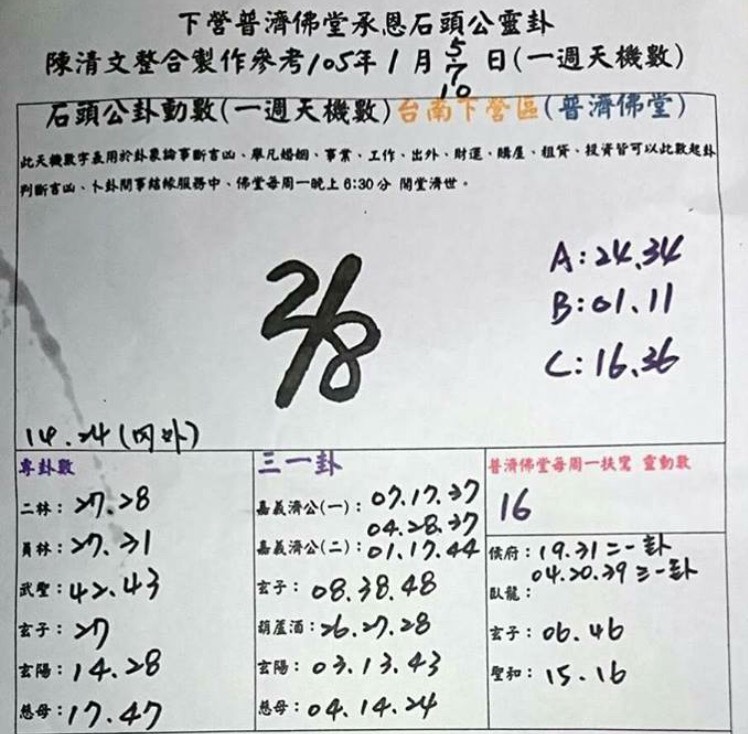 下營普濟佛堂承恩石頭公靈卦
陳清文整合製作參考105年1月5/7/10日(一週天機數)
石頭公卦動數(一週天機數)台南下營區(普濟佛堂)
此天機數字表用於卦象論事斷吉凶、舉凡婚姻、事業、工作、出外、財運、購屋、租賃、投資皆可以此數起卦
判斷吉凶、卜卦問事結緣服務中、佛堂每周一晚上6:30分 開堂濟世。
A:24.34
B:01.11
C:16.36
2/8
14.24(冈外)
專卦數
二林:27.28
員林:27.31
武聖:42.43
玄子:27
玄陽:14.28
慈母:17.47
三一卦
嘉義濟公(一):07.17.37
04.28.37
嘉義濟公(二):01.17.44
玄子:08.38.48
葫蘆酒:26.27.28
玄陽:03.13.43
慈母:04.14.24
普濟佛堂每周一扶鸞 靈動數
16
侯府:19.31二一卦
04.20.39三一卦
臥龍:
玄子:06.46
聖和:15.16